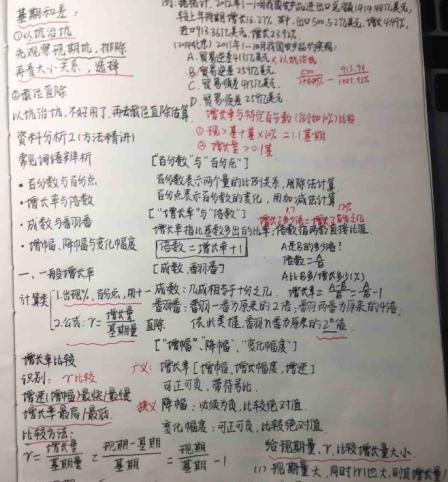 基期和差:
①以坑治坑
先观察现期坑,排除
再看大小关系,选择
②截位直除
以坑治坑,不好用了,再去截位直除估算
资料分析2(方法精讲)
常见词语辨析
·百分数与百分点
·增长率与倍数
·成数与翻番
·增幅、降幅与变化幅度
一、一般增长率
计算类
1.出现%、百分点,用+-
2.公式:r=增长量/基期量 直除
增长率比较
识别:r比较
增速(增幅)最快/最慢
增长率最高/最低
比较方法:
r=增长量/基期量=现期-基期/基期=现期/基期-1
例:据统计,2012年1-10月
较上年同期增长16.27%
2011年1-10月我国农产品
A.贸易逆差413亿美元 ×以坑治坑
B.贸易逆差259亿美元
C.贸易顺差413亿美元
D.贸易顺差259亿美元
增长率与特定百分数(例如10%)比较
①现>基+基×10%=1.1基期
②增长量>0.1基
["百分数"与"百分点"]
百分数表示两个量的比例关系,用除法计算
百分点表示百分数的变化,用加减法计算
["增长率"与"倍数"]
增长率指比基数多出的比率;倍数指两数直接比值
倍数=增长率+1
A是B的多少倍?
倍数=A/B
A比B多/增长多少(%)
增长率=A-B/B=A/B-1
[成数、翻番]
成数:几成相当于十分之几
翻番:翻一番为原来的2倍;翻两番为原来的4倍
依此类推,翻n番为原来的2ⁿ倍
["增幅"、"降幅"、"变化幅度"]
广义:增长率[增幅、增长幅度、增速]
可正可负,带符号比
狭义 降幅:必须为负,比较绝对值
变化幅度:可正可负,比较绝对值
给现期量,r,比较增长量大小
(1)现期量大,同时r也大,则其增长量